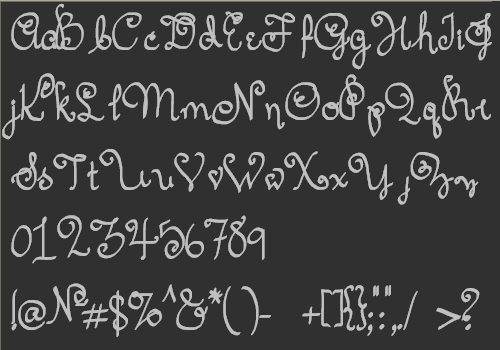 AaBbCcDdEeFfGgHhIiJ
jKkLlMmNnOoPpQqRr
SsTtUuVvWwXxYyZz
0123456789
!@№#$%^&*()- +[]{};:"",./ >?